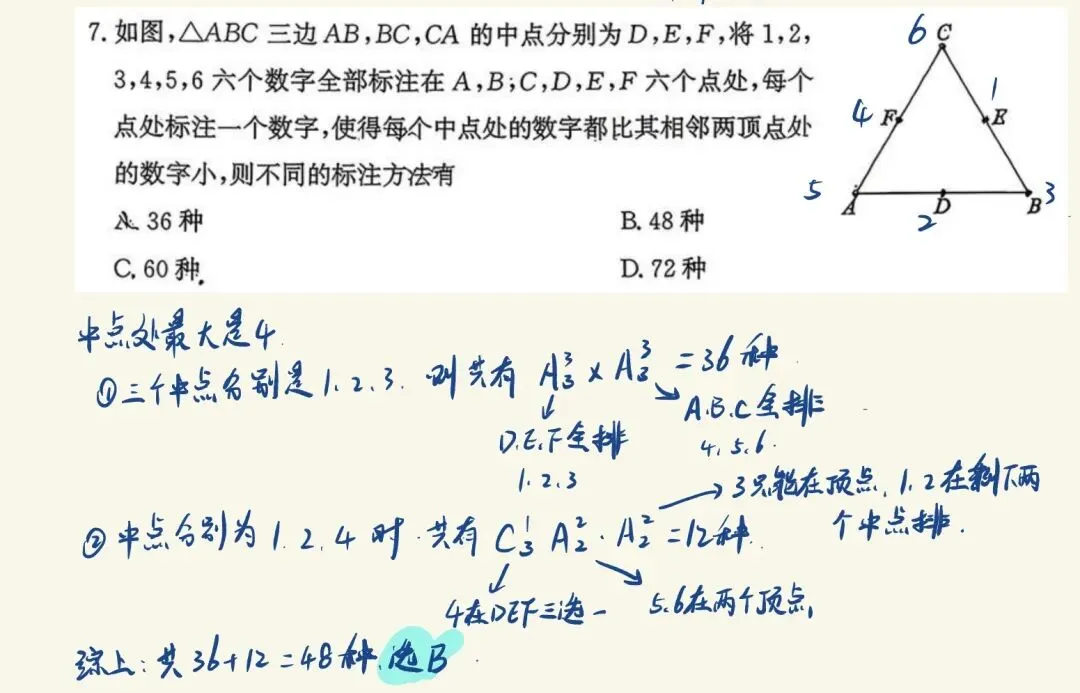 7. 如图,△ABC 三边 AB,BC,CA 的中点分别为 D,E,F,将 1,2,
3,4,5,6 六个数字全部标注在 A,B,C,D,E,F 六个点处,每个
点处标注一个数字,使得每个中点处的数字都比其相邻两顶点处
的数字小,则不同的标注方法有
A. 36 种
B. 48 种
C. 60 种
D. 72 种
6 C
1
4 F
E
5 A
D
B 3
2
中点处最大是4.
①三个中点分别是1、2、3. 则共有 A₃³×A₃³=36种.
D.E.F全排
1.2.3
A.B.C全排
4.5.6.
②中点分别为1.2.4时.共有 C₃¹A₂²·A₂²=12种.
3只能在顶点,1.2在剩下两
个中点排.
4在DEF三选一
5.6在两个顶点,
综上:共36+12=48种.选B